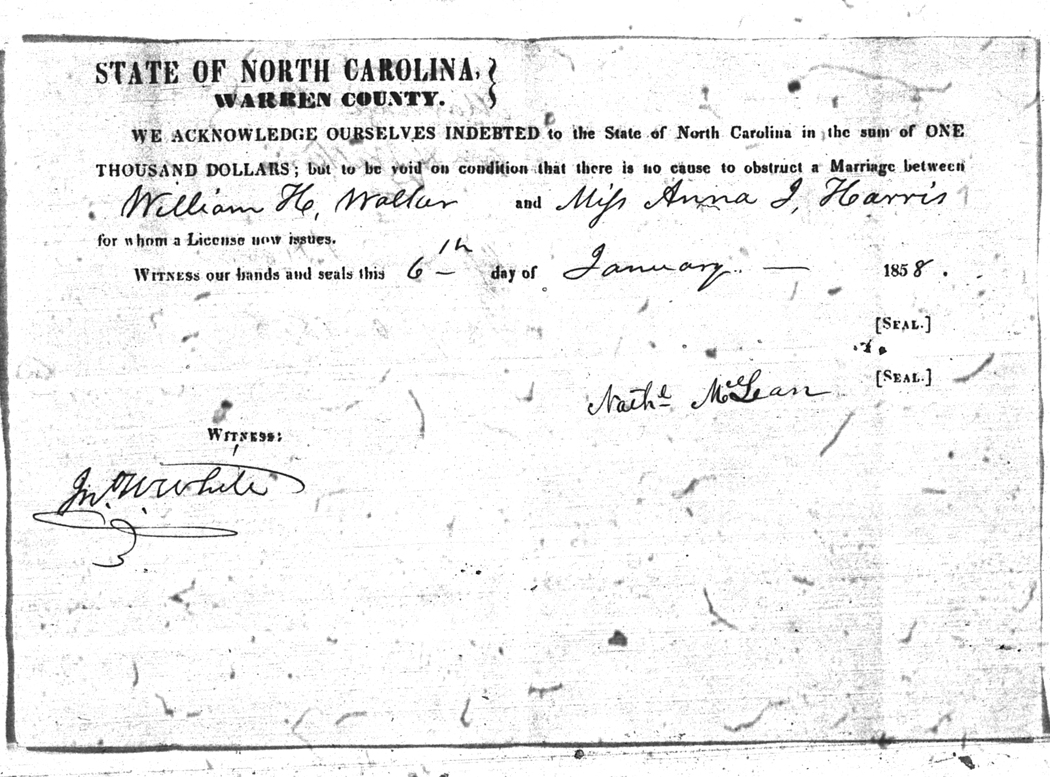 STATE OF NORTH CAROLINA,
WARREN COUNTY.
WE ACKNOWLEDGE OURSELVES INDEBTED to the State of North Carolina in the sum of ONE
THOUSAND DOLLARS; but to be void on condition that there is no cause to obstruct a Marriage between
William H. Walker and Miss Anna J. Harris
for whom a License now issues.
WITNESS our hands and seals this 6th day of January 1858.
[SEAL.]
Nathl McLean [SEAL.]
WITNESS:
Jno W. White